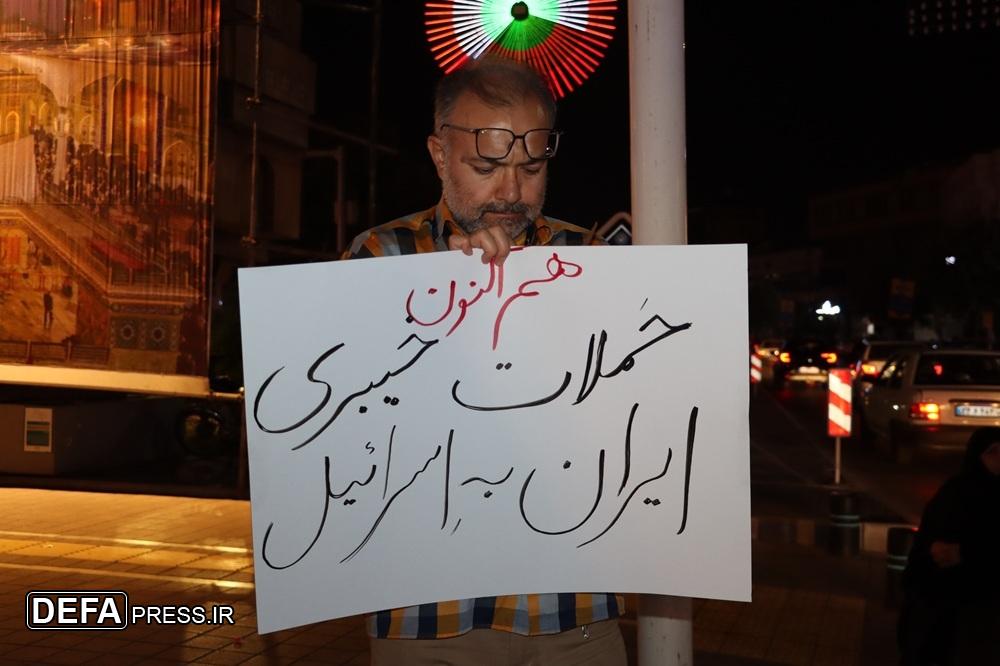 هم النون
حَملات خیبری
ایران بهِ اسرائیل
DEFAPRESS.IR